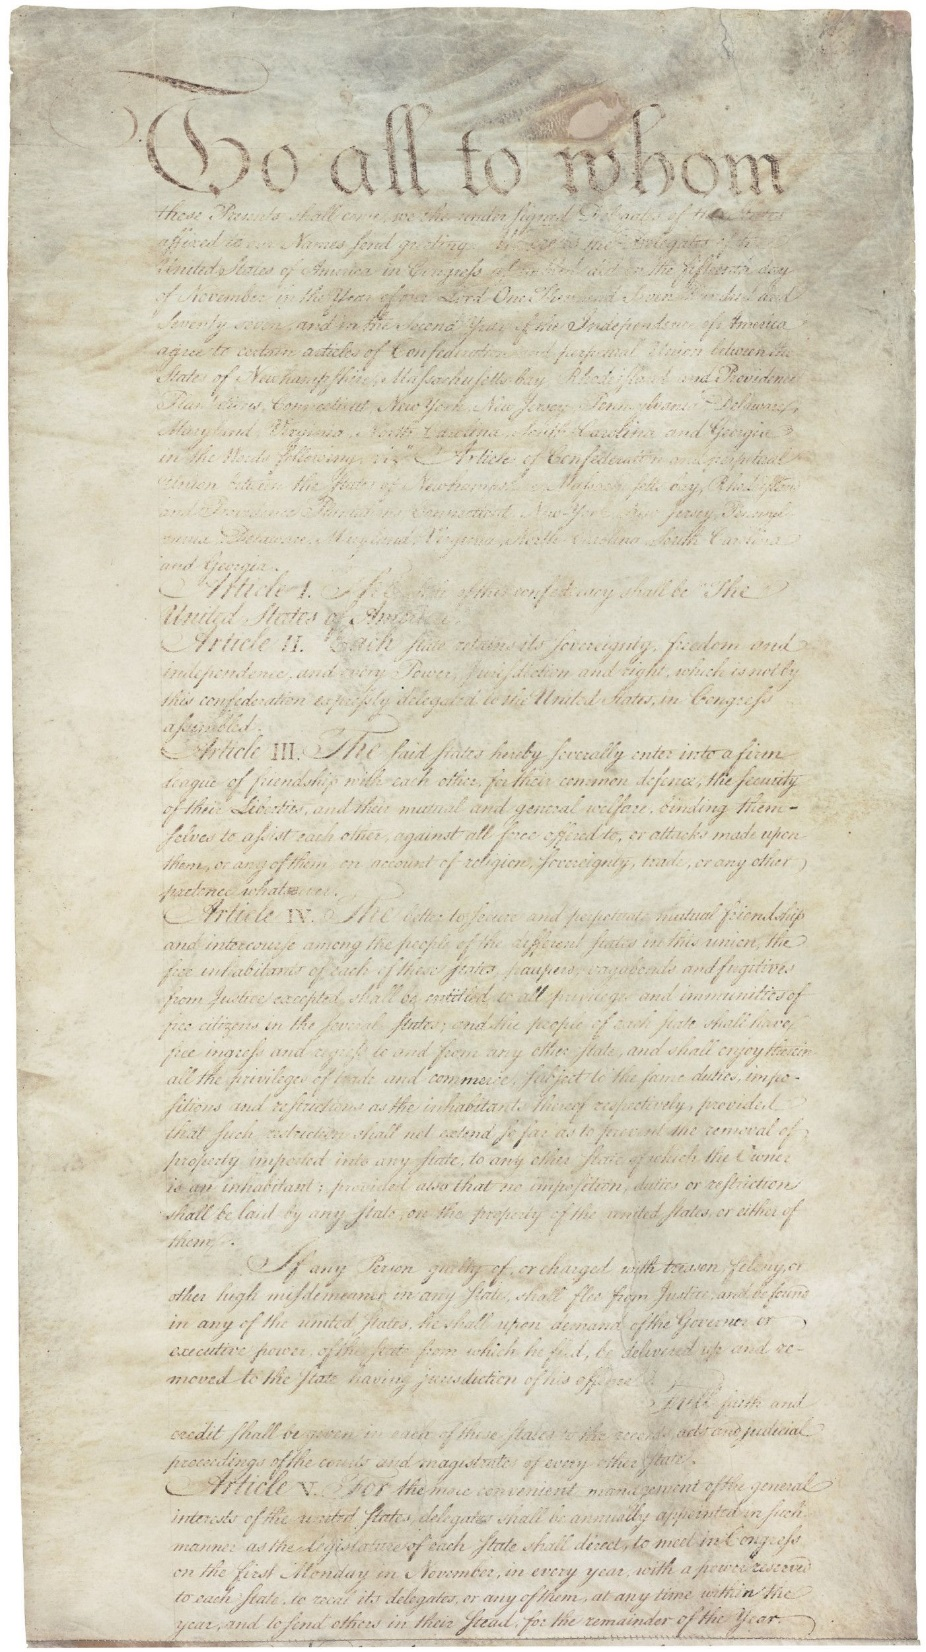 To all to whom
these Presents shall come, we the under signed Delegates of the States
affixed to our Names send greeting. Whereas the Delegates of the
United States of America in Congress assembled did on the fifteenth day
of November in the Year of our Lord One Thousand Seven Hundred and
Seventy seven, and in the Second Year of the Independence of America
agree to certain articles of Confederation and perpetual Union between the
States of Newhampshire, Massachusetts-bay, Rhodeisland and Providence
Plantations, Connecticut, New York, New Jersey, Pennsylvania, Delaware,
Maryland, Virginia, North-Carolina, South-Carolina and Georgia
in the Words following, viz. "Articles of Confederation and perpetual
Union between the States of Newhampshire, Massachusetts-bay, Rhodeisland
and Providence Plantations, Connecticut, New-York, New-Jersey, Pennsyl-
vania, Delaware, Maryland, Virginia, North-Carolina, South-Carolina
and Georgia.
Article I. The Stile of this confederacy shall be "The
United States of America."
Article II. Each state retains its sovereignty, freedom and
independence, and every Power, Jurisdiction and right, which is not by
this confederation expressly delegated to the United States, in Congress
assembled.
Article III. The said states hereby severally enter into a firm
league of friendship with each other, for their common defence, the security
of their Liberties, and their mutual and general welfare, binding them-
selves to assist each other, against all force offered to, or attacks made upon
them, or any of them, on account of religion, sovereignty, trade, or any other
pretence whatever.
Article IV. The better to secure and perpetuate mutual friendship
and intercourse among the people of the different states in this union, the
free inhabitants of each of these states, paupers, vagabonds and fugitives
from Justice excepted, shall be entitled to all privileges and immunities of
free citizens in the several states; and the people of each state shall have
free ingress and regress to and from any other state, and shall enjoy therein
all the privileges of trade and commerce, subject to the same duties, impo-
sitions and restrictions as the inhabitants thereof respectively, provided
that such restriction shall not extend so far as to prevent the removal of
property imported into any state, to any other state of which the Owner
is an inhabitant; provided also that no imposition, duties or restriction
shall be laid by any state, on the property of the united states, or either of
them.
If any Person guilty of, or charged with treason, felony, or
other high misdemeanor in any state, shall flee from Justice, and be found
in any of the united states, he shall upon demand of the Governor or
executive power, of the state from which he fled, be delivered up and re-
moved to the state having jurisdiction of his offence.
Full faith and
credit shall be given in each of these states to the records, acts and judicial
proceedings of the courts and magistrates of every other state.
Article V. For the more convenient management of the general
interests of the united states, delegates shall be annually appointed in such
manner as the legislature of each state shall direct, to meet in Congress
on the first Monday in November, in every year, with a power reserved
to each state, to recal its delegates, or any of them, at any time within the
year, and to send others in their stead, for the remainder of the Year.